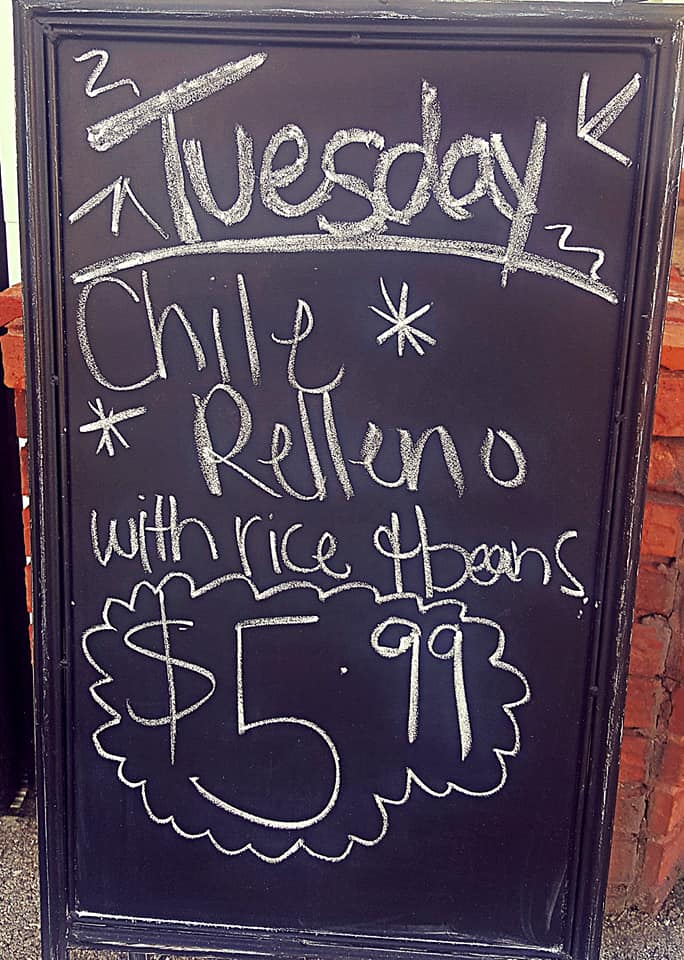 Tuesday
Chile
Relleno
with rice & beans
$5.99